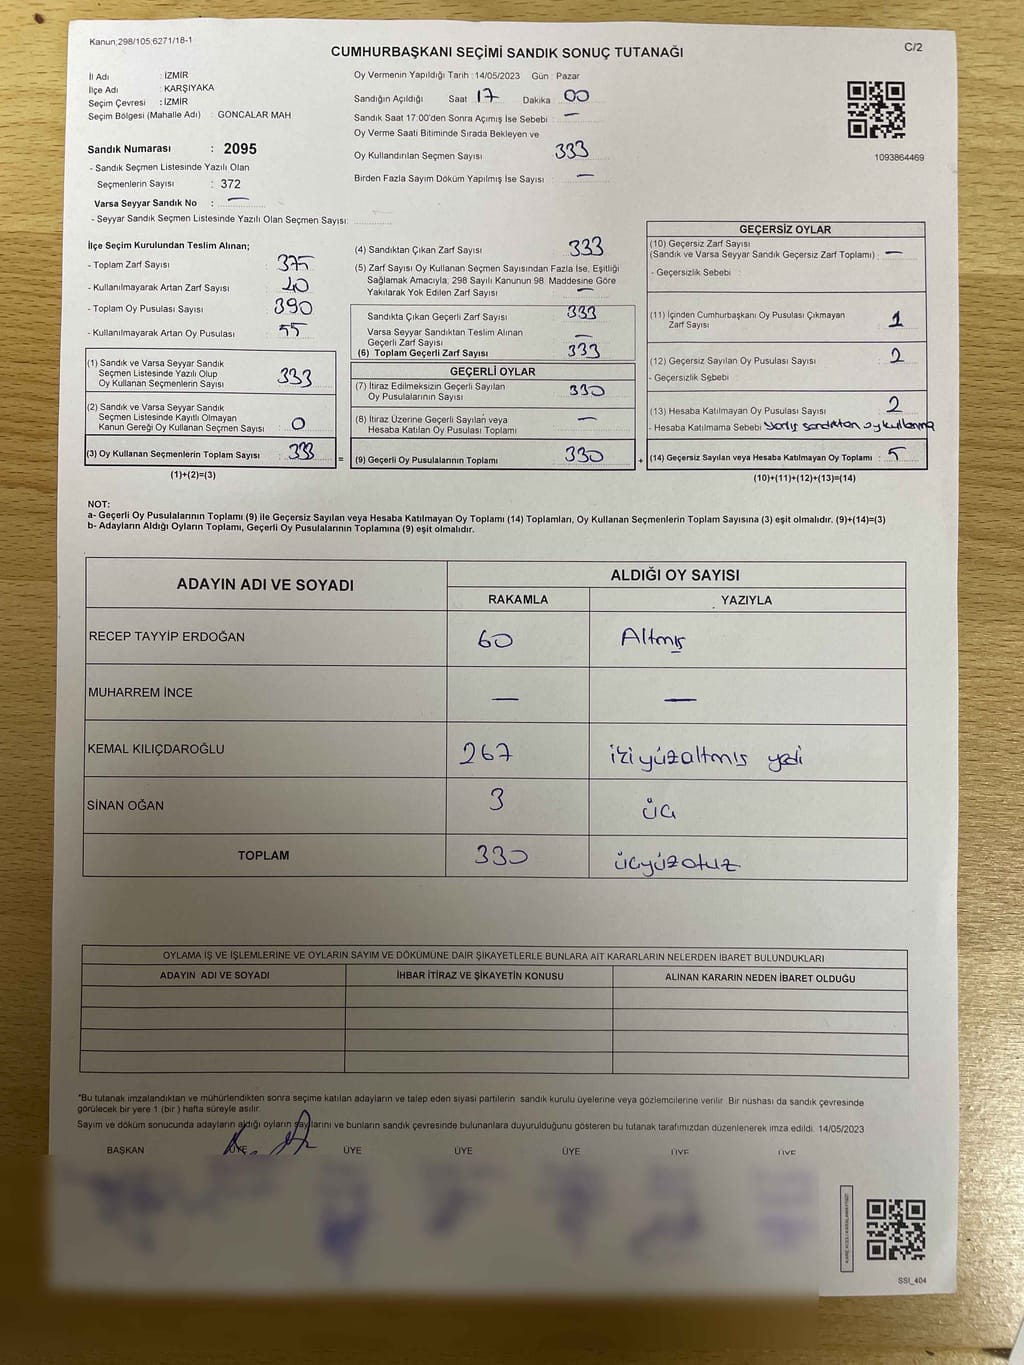 Kanun;298/105;6271/18-1
C/2
CUMHURBAŞKANI SEÇİMİ SANDIK SONUÇ TUTANAĞI
İl Adı : İZMİR
İlçe Adı : KARŞIYAKA
Seçim Çevresi : İZMİR
Seçim Bölgesi (Mahalle Adı) : GONCALAR MAH
Sandık Numarası : 2095
- Sandık Seçmen Listesinde Yazılı Olan
Seçmenlerin Sayısı : 372
Varsa Seyyar Sandık No : —
- Seyyar Sandık Seçmen Listesinde Yazılı Olan Seçmen Sayısı:
Oy Vermenin Yapıldığı Tarih : 14/05/2023 Gün : Pazar
Sandığın Açıldığı Saat 17 Dakika 00
Sandık Saat 17:00'den Sonra Açımış İse Sebebi : —
Oy Verme Saati Bitiminde Sırada Bekleyen ve
Oy Kullandırılan Seçmen Sayısı 333
Birden Fazla Sayım Döküm Yapılmış İse Sayısı : —
1093864469
İlçe Seçim Kurulundan Teslim Alınan;
- Toplam Zarf Sayısı : 375
- Kullanılmayarak Artan Zarf Sayısı : 40
- Toplam Oy Pusulası Sayısı : 390
- Kullanılmayarak Artan Oy Pusulası : 55
(1) Sandık ve Varsa Seyyar Sandık
Seçmen Listesinde Yazılı Olup
Oy Kullanan Seçmenlerin Sayısı : 333
(2) Sandık ve Varsa Seyyar Sandık
Seçmen Listesinde Kayıtlı Olmayan
Kanun Gereği Oy Kullanan Seçmen Sayısı : 0
(3) Oy Kullanan Seçmenlerin Toplam Sayısı : 333
(1)+(2)=(3)
=
(4) Sandıktan Çıkan Zarf Sayısı : 333
(5) Zarf Sayısı Oy Kullanan Seçmen Sayısından Fazla İse, Eşitliği
Sağlamak Amacıyla, 298 Sayılı Kanunun 98. Maddesine Göre
Yakılarak Yok Edilen Zarf Sayısı : —
Sandıkta Çıkan Geçerli Zarf Sayısı : 333
Varsa Seyyar Sandıktan Teslim Alınan
Geçerli Zarf Sayısı : —
(6) Toplam Geçerli Zarf Sayısı : 333
GEÇERLİ OYLAR
(7) İtiraz Edilmeksizin Geçerli Sayılan
Oy Pusulalarının Sayısı : 330
(8) İtiraz Üzerine Geçerli Sayılan veya
Hesaba Katılan Oy Pusulası Toplamı : —
(9) Geçerli Oy Pusulalarının Toplamı : 330
+
GEÇERSİZ OYLAR
(10) Geçersiz Zarf Sayısı
(Sandık ve Varsa Seyyar Sandık Geçersiz Zarf Toplamı) : —
- Geçersizlik Sebebi :
(11) İçinden Cumhurbaşkanı Oy Pusulası Çıkmayan
Zarf Sayısı : 1
(12) Geçersiz Sayılan Oy Pusulası Sayısı : 2
- Geçersizlik Sebebi :
(13) Hesaba Katılmayan Oy Pusulası Sayısı : 2
- Hesaba Katılmama Sebebi Yanlış sandıktan oy kullanma
(14) Geçersiz Sayılan veya Hesaba Katılmayan Oy Toplamı : 5
(10)+(11)+(12)+(13)=(14)
NOT:
a- Geçerli Oy Pusulalarının Toplamı (9) ile Geçersiz Sayılan veya Hesaba Katılmayan Oy Toplamı (14) Toplamları, Oy Kullanan Seçmenlerin Toplam Sayısına (3) eşit olmalıdır. (9)+(14)=(3)
b- Adayların Aldığı Oyların Toplamı, Geçerli Oy Pusulalarının Toplamına (9) eşit olmalıdır.
ADAYIN ADI VE SOYADI
ALDIĞI OY SAYISI
RAKAMLA YAZIYLA
RECEP TAYYİP ERDOĞAN 60 Altmış
MUHARREM İNCE — —
KEMAL KILIÇDAROĞLU 267 ikiyüzaltmış yedi
SİNAN OĞAN 3 üç
TOPLAM 330 üçyüzotuz
OYLAMA İŞ VE İŞLEMLERİNE VE OYLARIN SAYIM VE DÖKÜMÜNE DAİR ŞİKAYETLERLE BUNLARA AİT KARARLARIN NELERDEN İBARET BULUNDUKLARI
ADAYIN ADI VE SOYADI İHBAR İTİRAZ VE ŞİKAYETİN KONUSU ALINAN KARARIN NEDEN İBARET OLDUĞU
*Bu tutanak imzalandıktan ve mühürlendikten sonra seçime katılan adayların ve talep eden siyasi partilerin sandık kurulu üyelerine veya gözlemcilerine verilir. Bir nüshası da sandık çevresinde
görülecek bir yere 1 (bir ) hafta süreyle asılır.
Sayım ve döküm sonucunda adayların aldığı oyların sayılarını ve bunların sandık çevresinde bulunanlara duyurulduğunu gösteren bu tutanak tarafımızdan düzenlenerek imza edildi. 14/05/2023
BAŞKAN ÜYE ÜYE ÜYE ÜYE ÜYE ÜYE
SSI_404